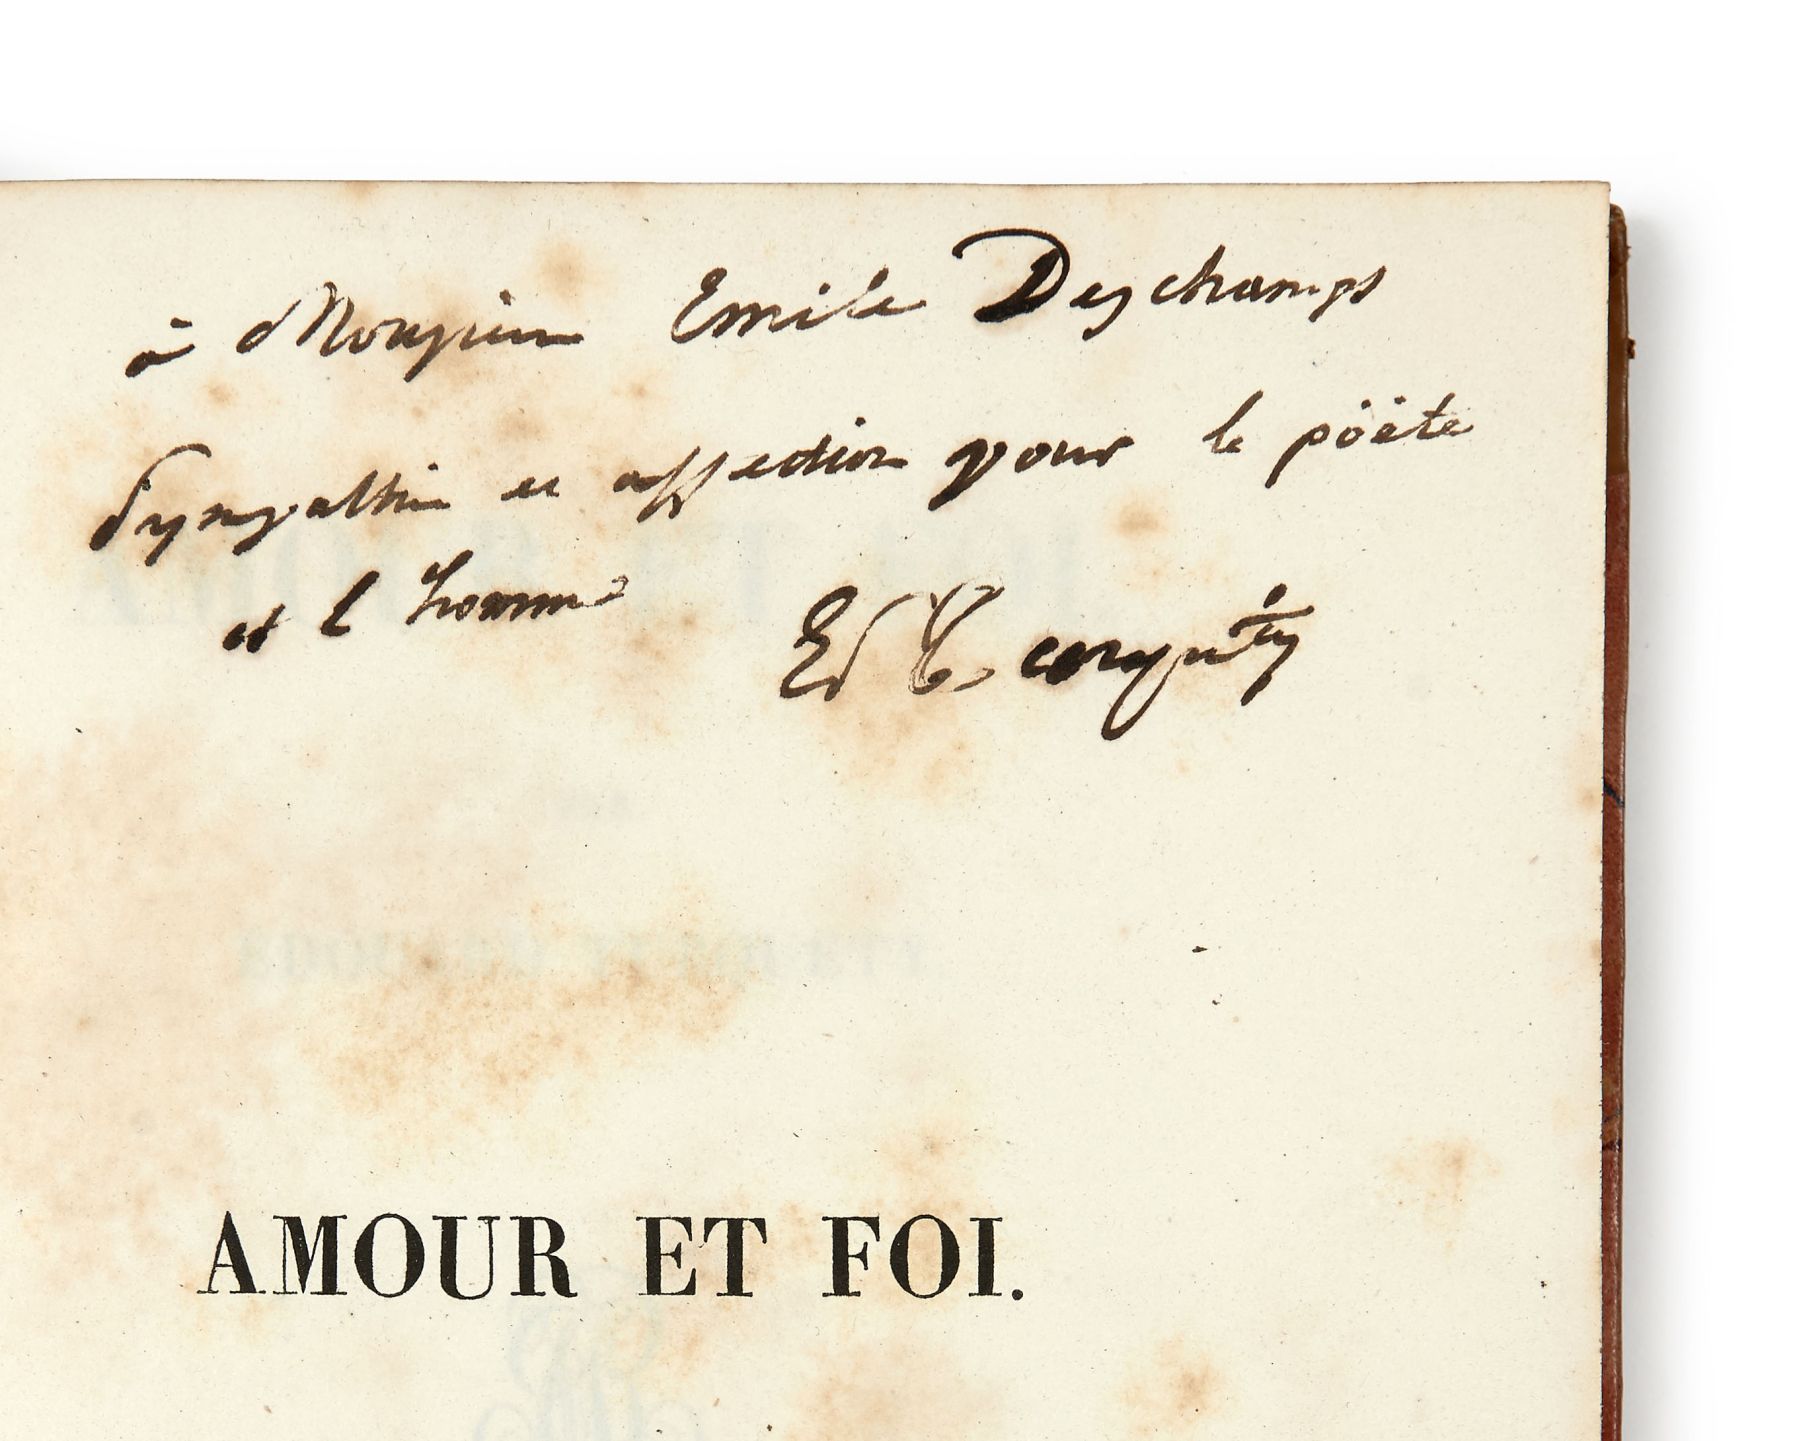 à Monsieur Emile Deschamps
Sympathie et affection pour le pöëte
et l'homme
Ed
AMOUR ET FOI.